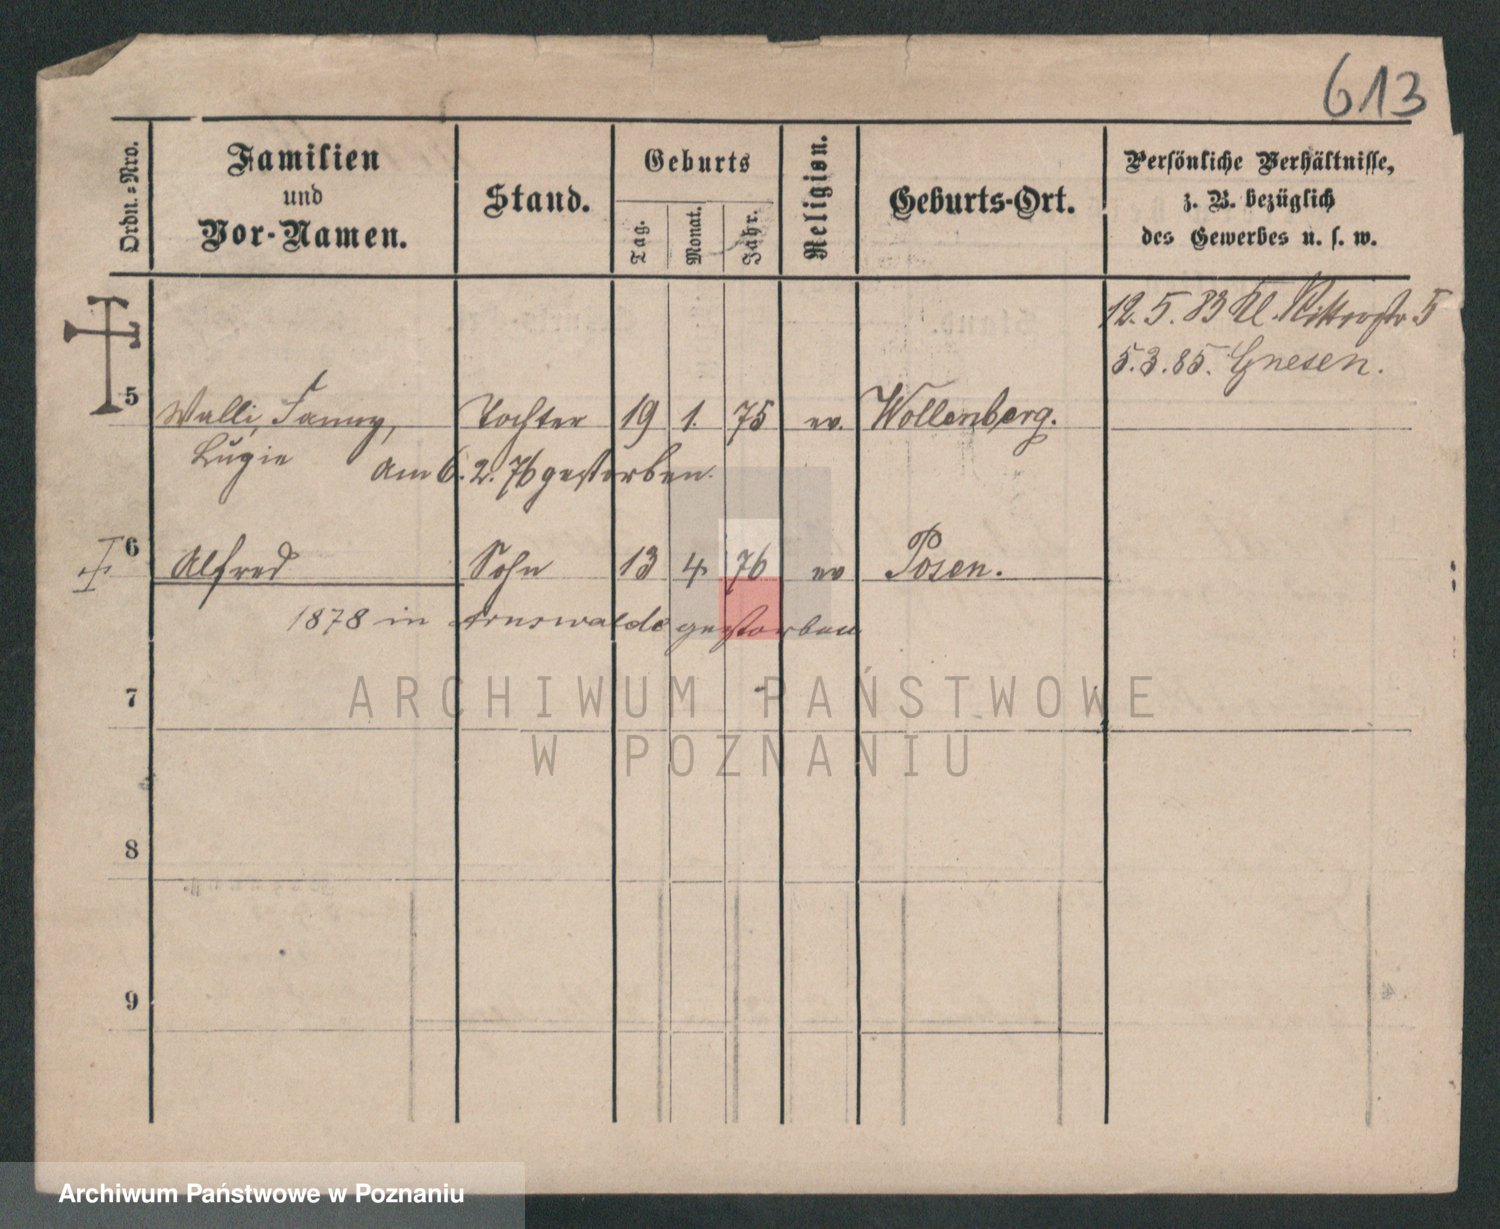 613
Ordn.-Nro.
Familien
und
Vor-Namen.
Stand.
Geburts
Tag.
Monat.
Jahr.
Religion.
Geburts-Ort.
Persönliche Verhältnisse,
z. B. bezüglich
des Gewerbes u. s. w.
12. 5. 83 Kl. Ritterstr. 5
5. 3. 85. Gnesen.
5 Walli, Fanny, Tochter 19 1. 75 ev. Wollenberg.
am 6. 2. 76 gestorben.
6 Alfred Sohn 13 4. 76 ev Posen.
1878 in Arnswalde gestorben
7
ARCHIWUM PAŃSTWOWE
W POZNANIU
8
9
Archiwum Państwowe w Poznaniu